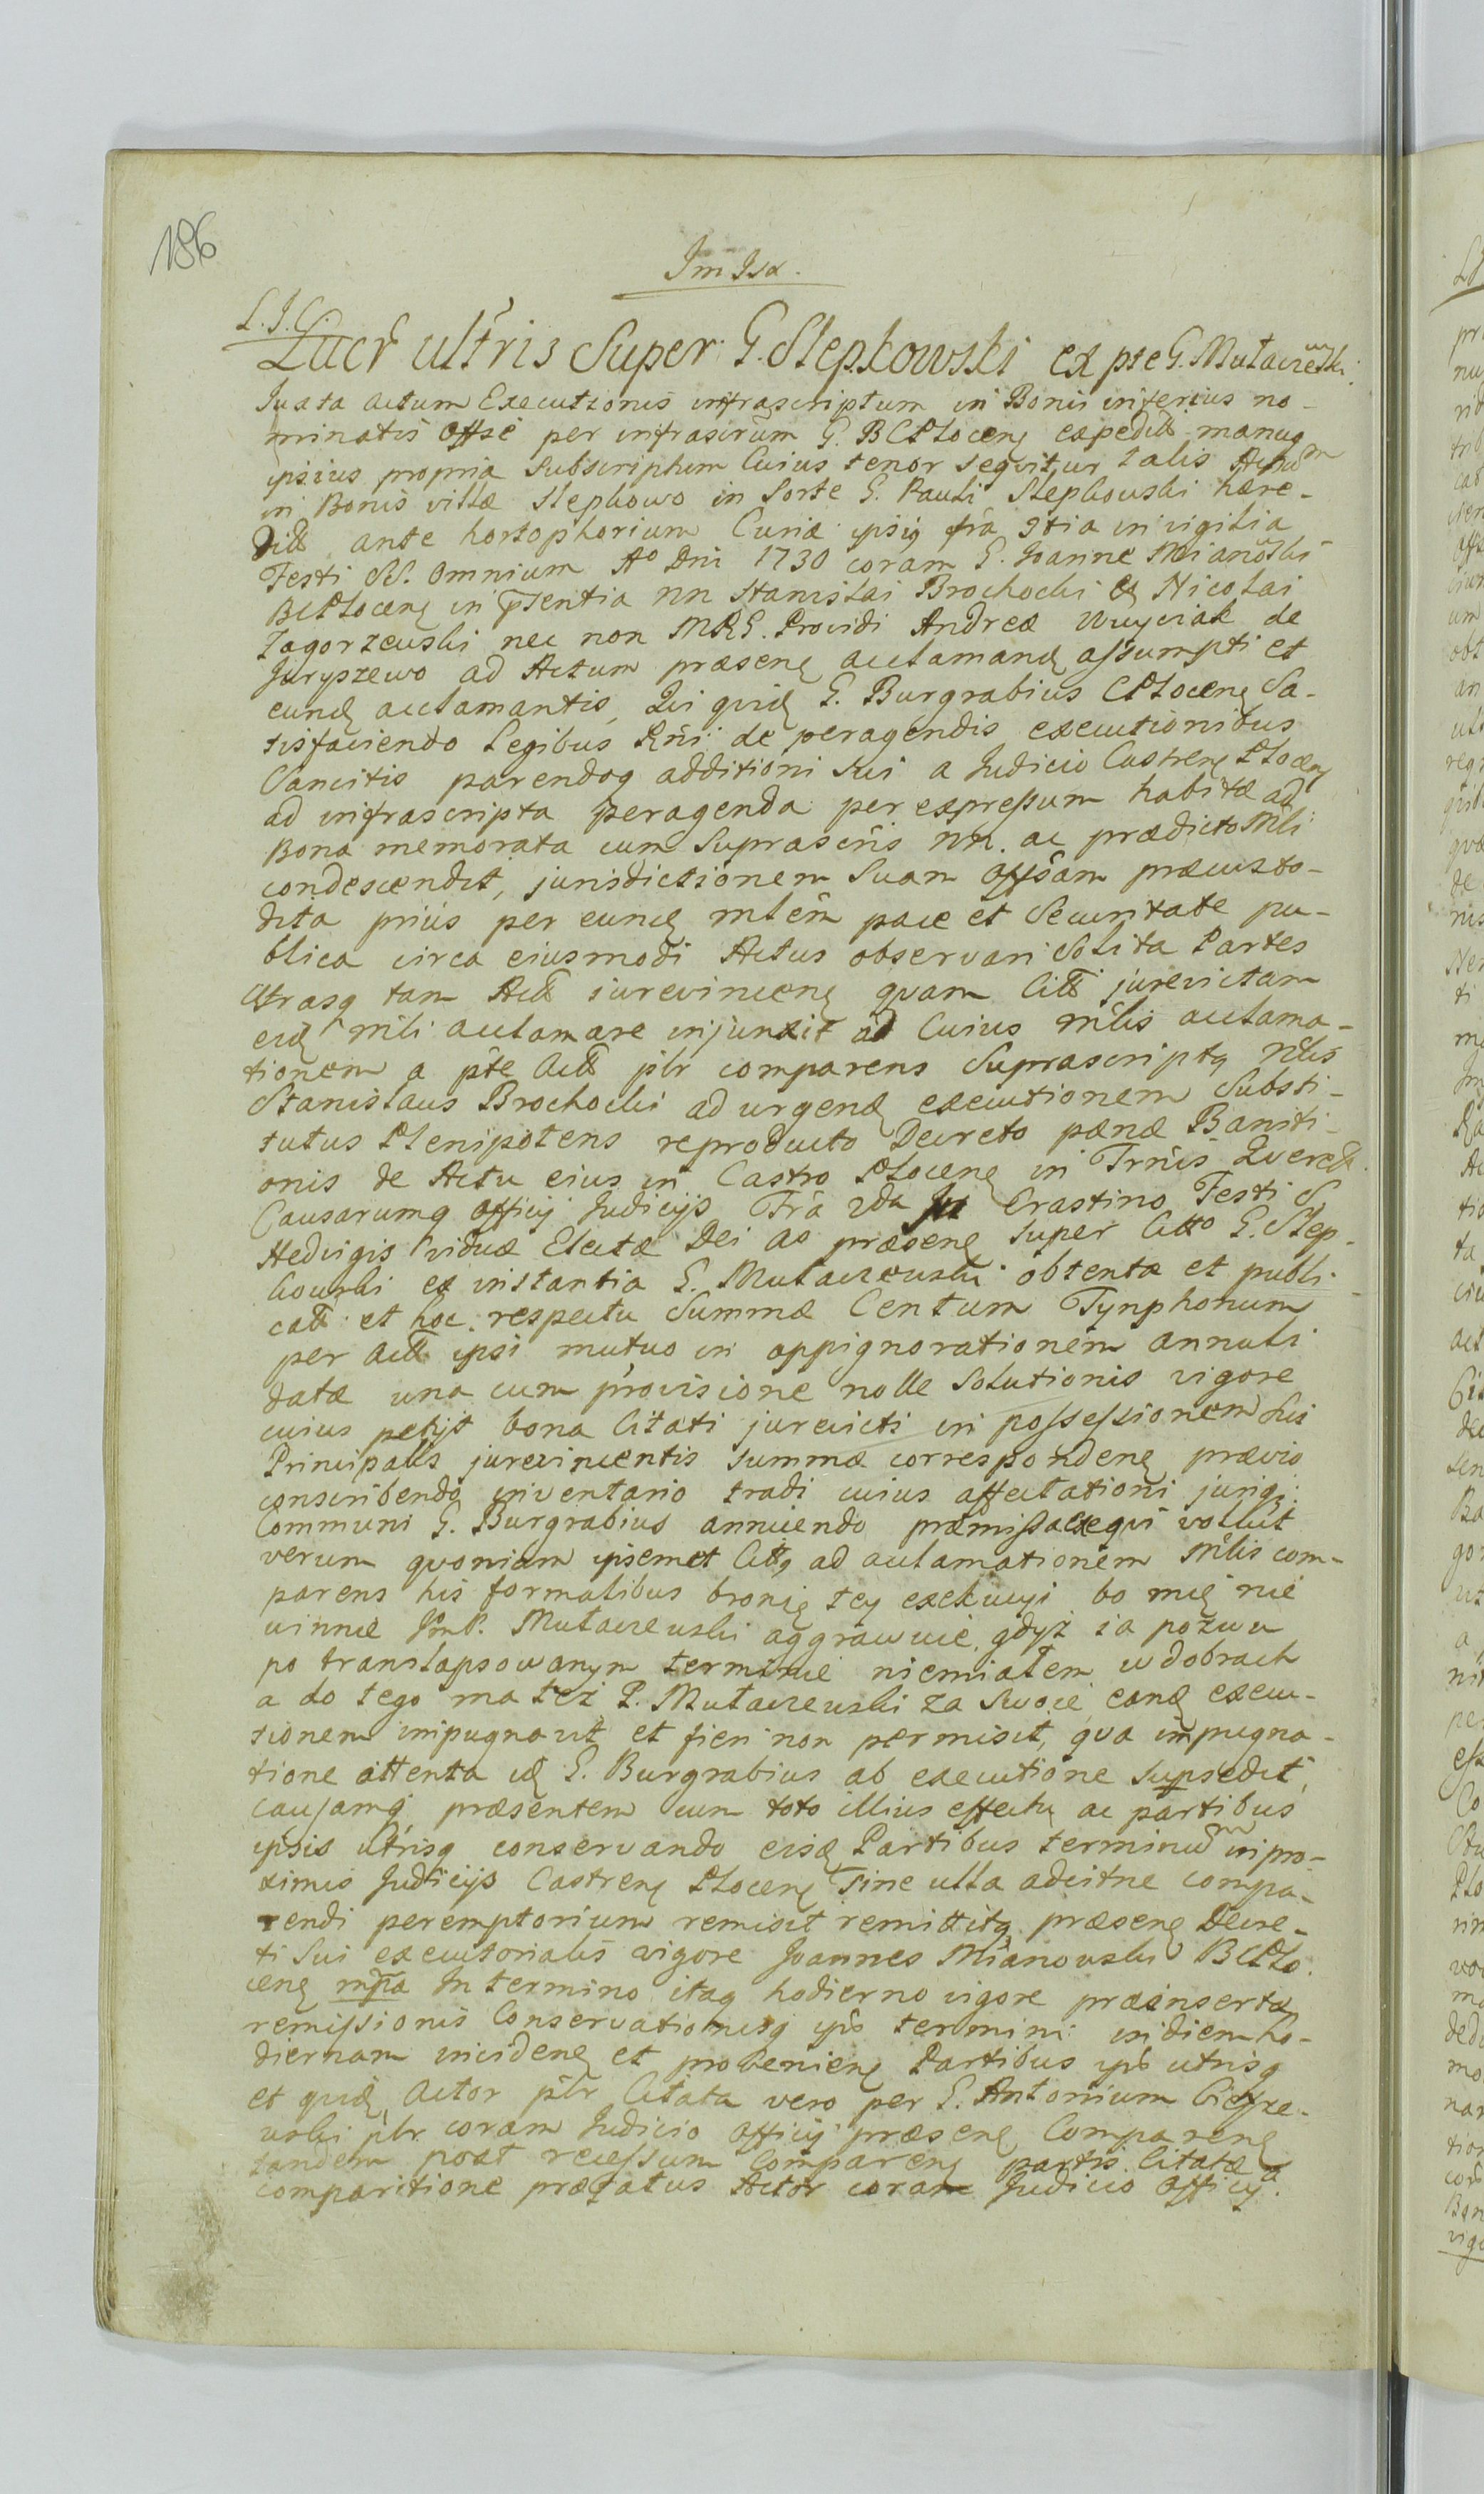 186
Im Isa.
L. J. C.
Lucr ultris Super G. Slepkowski ex pte G. Mutaczewski.
Juxta actum Executionis infrascriptum in Bonis inferius no-
minatis Offse per infrascrum G. BCPlocenę expedit manuq
ipsius propria Subscriptum Cuius tenor seqvitur talis Actum
in Bonis villæ Slepkowo in Sorte G. Pauli Slepkowski hære-
dit ante hortophorium Curiæ ipsiq fra 3tia in vigilia
Festi SS. Omnium Ao Dni 1730 coram G. Joanne Mianowski
BCPlocenę in pñtentia NN Stanislai Brochocki & Nicolai
Zagorzewski nec non MRG. Providi Andreæ Wuyciak de
Juryszewo ad Actum præsenę acclamandę assumpti et
eundę acclamantis, Qui quidę G. Burgrabius CPlocenę Sa-
tisfaciendo Legibus Rñi de peragendis executionibus
Sancitis parendoq additioni Sui a Judicio Castrenę Plocenę
ad infrascripta peragenda per expressum habitæ ad
Bona memorata cum Suprascris NN. ac prædicto Mli
condescendit, jurisdictionem Suam Offsam præcusto-
dita priús per eundę mlem pace et Securitate pu-
blica circa eiusmodi Actus observari Solita Partes
Utrasq tam Act jurevincenę qvam Citt jurevictam
eidę mli acclamare injunxit ad Cuius mlis acclama-
tionem a pte Act plr comparens Suprascriptq Nlis
Stanislaus Brochocki ad urgendę executionem Substi-
tutus Plenipotens reproducto Decreto pænæ Baniti-
onis de Actu eius in Castro Plocenę in Trñis Querel
Causarumq Officij Judicijs Fra 2da In Crastino Festi S.
Hedvigis viduæ Electæ Dei Ao præsenę Super Citto G. Slep-
kowski ex instantia G. Mutaczewski obtenta et publi-
catt et hoc respectu Summæ Centum Tynphonum
per Act ipsi mutuo in oppignorationem annuli
datæ una cum provisione nolle Solutionis vigore
cuius petijt bona Citati jurevicti in possessionem Sui
Principalis jurevincentis Summæ correspondenę prævio
conscribendo inventario tradi cuius affectationi juriq
Communi G. Burgrabius annuendo præmissa exeqvi volluit
verum qvoniam ipsemet Cittq ad acclamationem Mlis com-
parens his formalibus bronię tey exekucyi bo mię nie
winnie JmP. Mutaczewski aggrawuie, gdyż ia pozwu
po translapsowanym terminie niemiałem w dobrach
a do tego ma też P. Mutaczewski za Swoie, eandę execu-
tionem impugnavit et fieri non permisit, qva impugna-
tione attenta idę G. Burgrabius ab executione supsedit,
causamq præsentem cum toto illius effectu ac partibus
ipsis utrisq conservando eisdę Partibus terminum in pro-
ximis Judicijs Castrenę Plocenę Sine ulla adcitne compa-
rendi peremptorium remisit remittitq præsenę Decre-
ti Sui executorialis vigore Joannes Mianowski BCPlo-
cenę mpa In termino itaq hodierno vigore præinsertæ
remissionis Conservationisq ips termini in diem ho-
diernam incidenę et provenienę Partibus ips utrisq
et quidę Actor plr Citata vero per G. Antonium
plr coram Judicio Officij præsenę Comparenę
tandem post recessum Comparenę partis Citatæ a
comparitione præfatus Actor coram Judicio Officij.